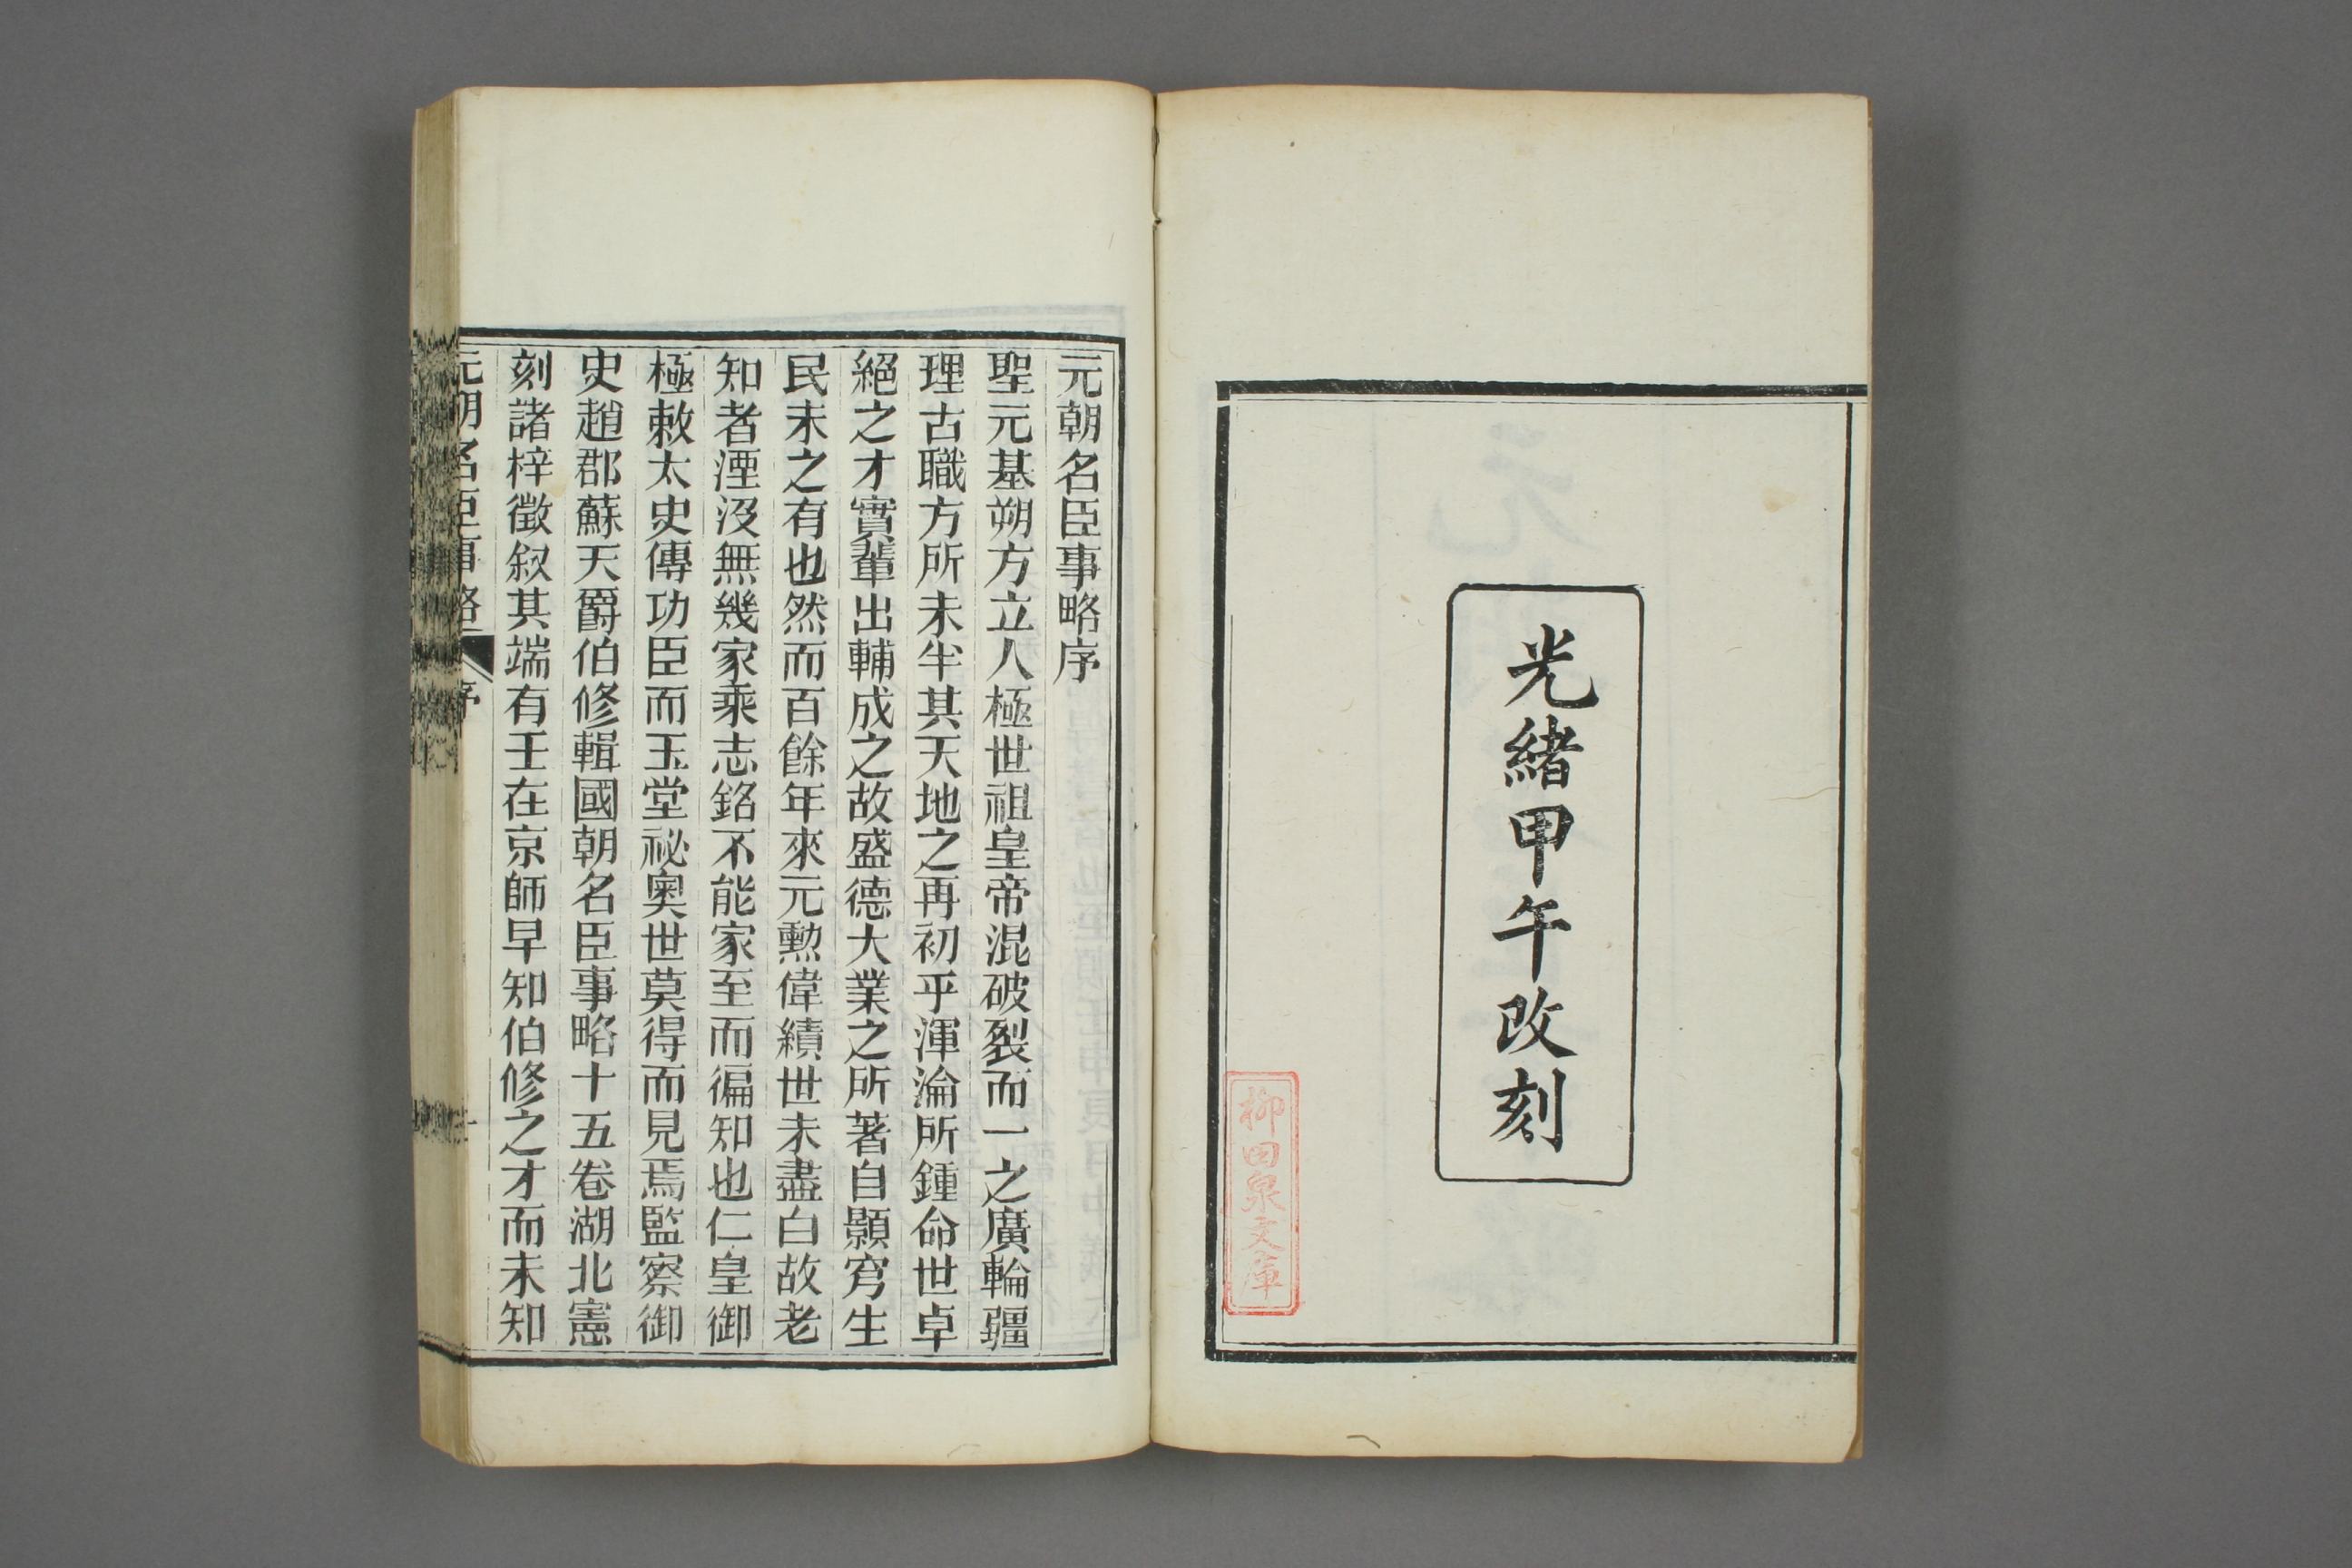 光緒甲午改刻
柳田泉文庫
元朝名臣事略序
聖元基朔方立人極世祖皇帝混破裂而一之廣輪疆
理古職方所未半其天地之再初乎渾淪所鍾命世卓
絕之才實輩出輔成之故盛德大業之所著自顥穹生
民未之有也然而百餘年來元勳偉績世未盡白故老
知者湮沒無幾家乘志銘不能家至而徧知也仁皇御
極敕太史傳功臣而玉堂祕奧世莫得而見焉監察御
史趙郡蘇天爵伯修輯國朝名臣事略十五卷湖北憲
刻諸梓徵叙其端有壬在京師早知伯修之才而未知
元朝名臣事略 序 一